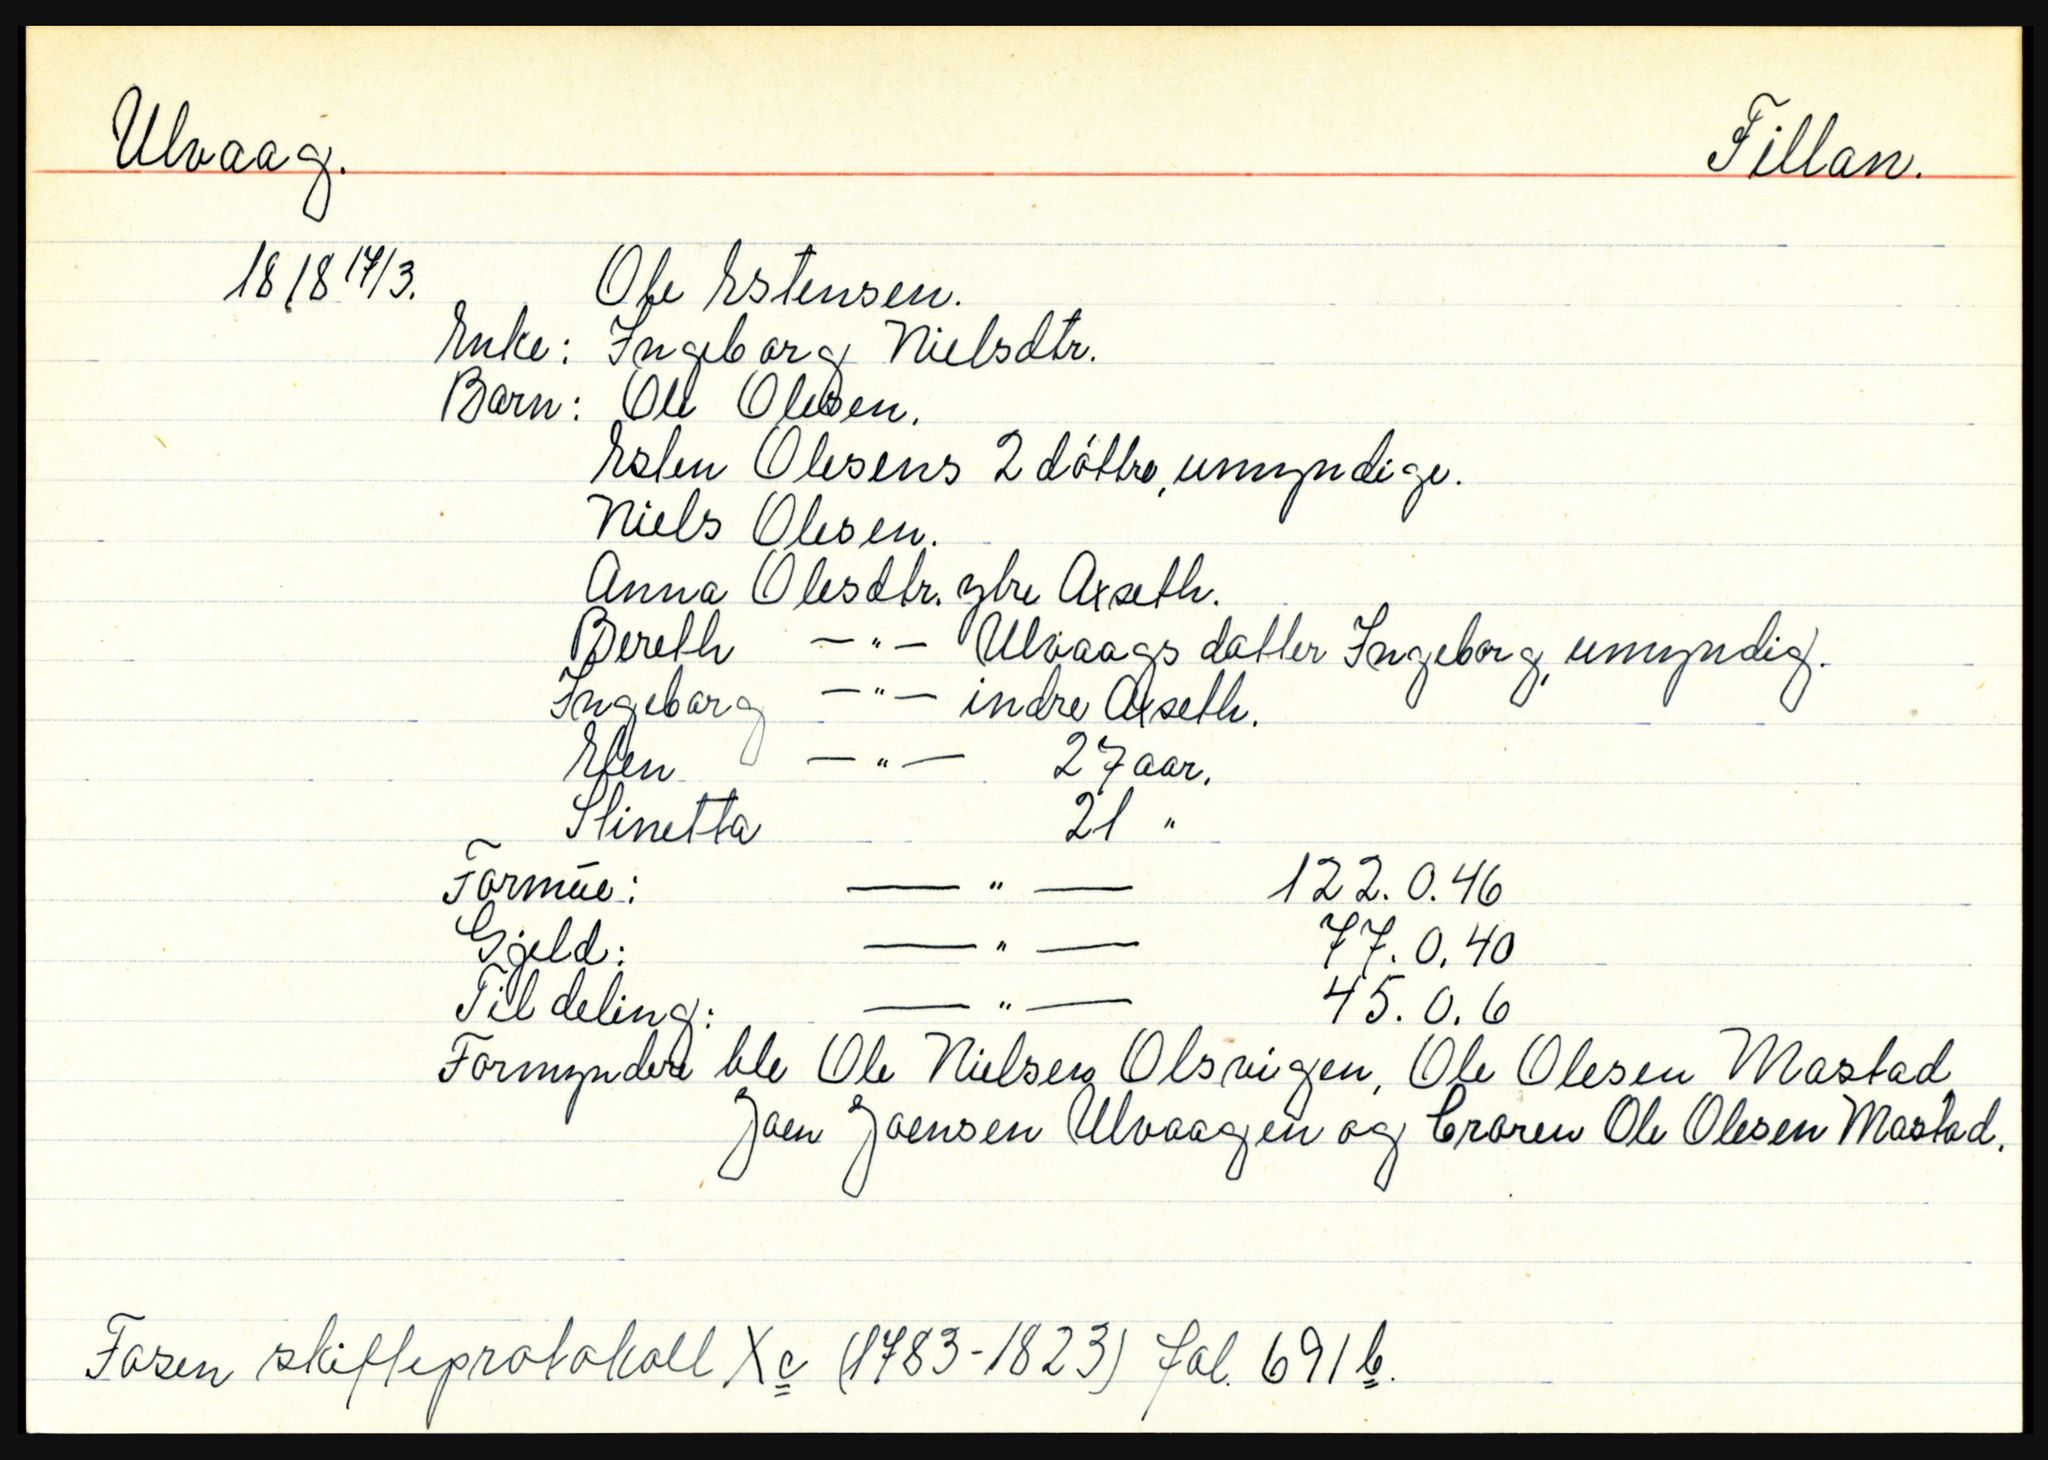 Ulvaag. Fillan.
1818 17/3. Ole Estensen.
Enke: Ingeborg Nielsdtr.
Barn: Ole Olesen.
Esten Olesens 2 döttre, umyndige.
Niels Olesen.
Anna Olesdtr. ytre Axseth.
Bereth —"— Ulvaags datter Ingeborg, umyndig.
Ingeborg —"— indre Axseth.
Elen —"— 27 aar.
Stinetta 21 "
Formúe: —"— 122.0.46
Gjeld: —"— 77.0.40
Til deling: —"— 45.0.6
Formyndere ble Ole Nielsen Olsvigen, Ole Olesen Mastad
Joen Joensen Ulvaagen og Ole Olesen Mastad.
Fosen skifteprotokoll Xc (1783-1823) fol. 691b.